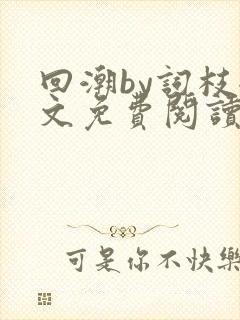 回潮by詞枝
文免費閱讀
可是你不快樂